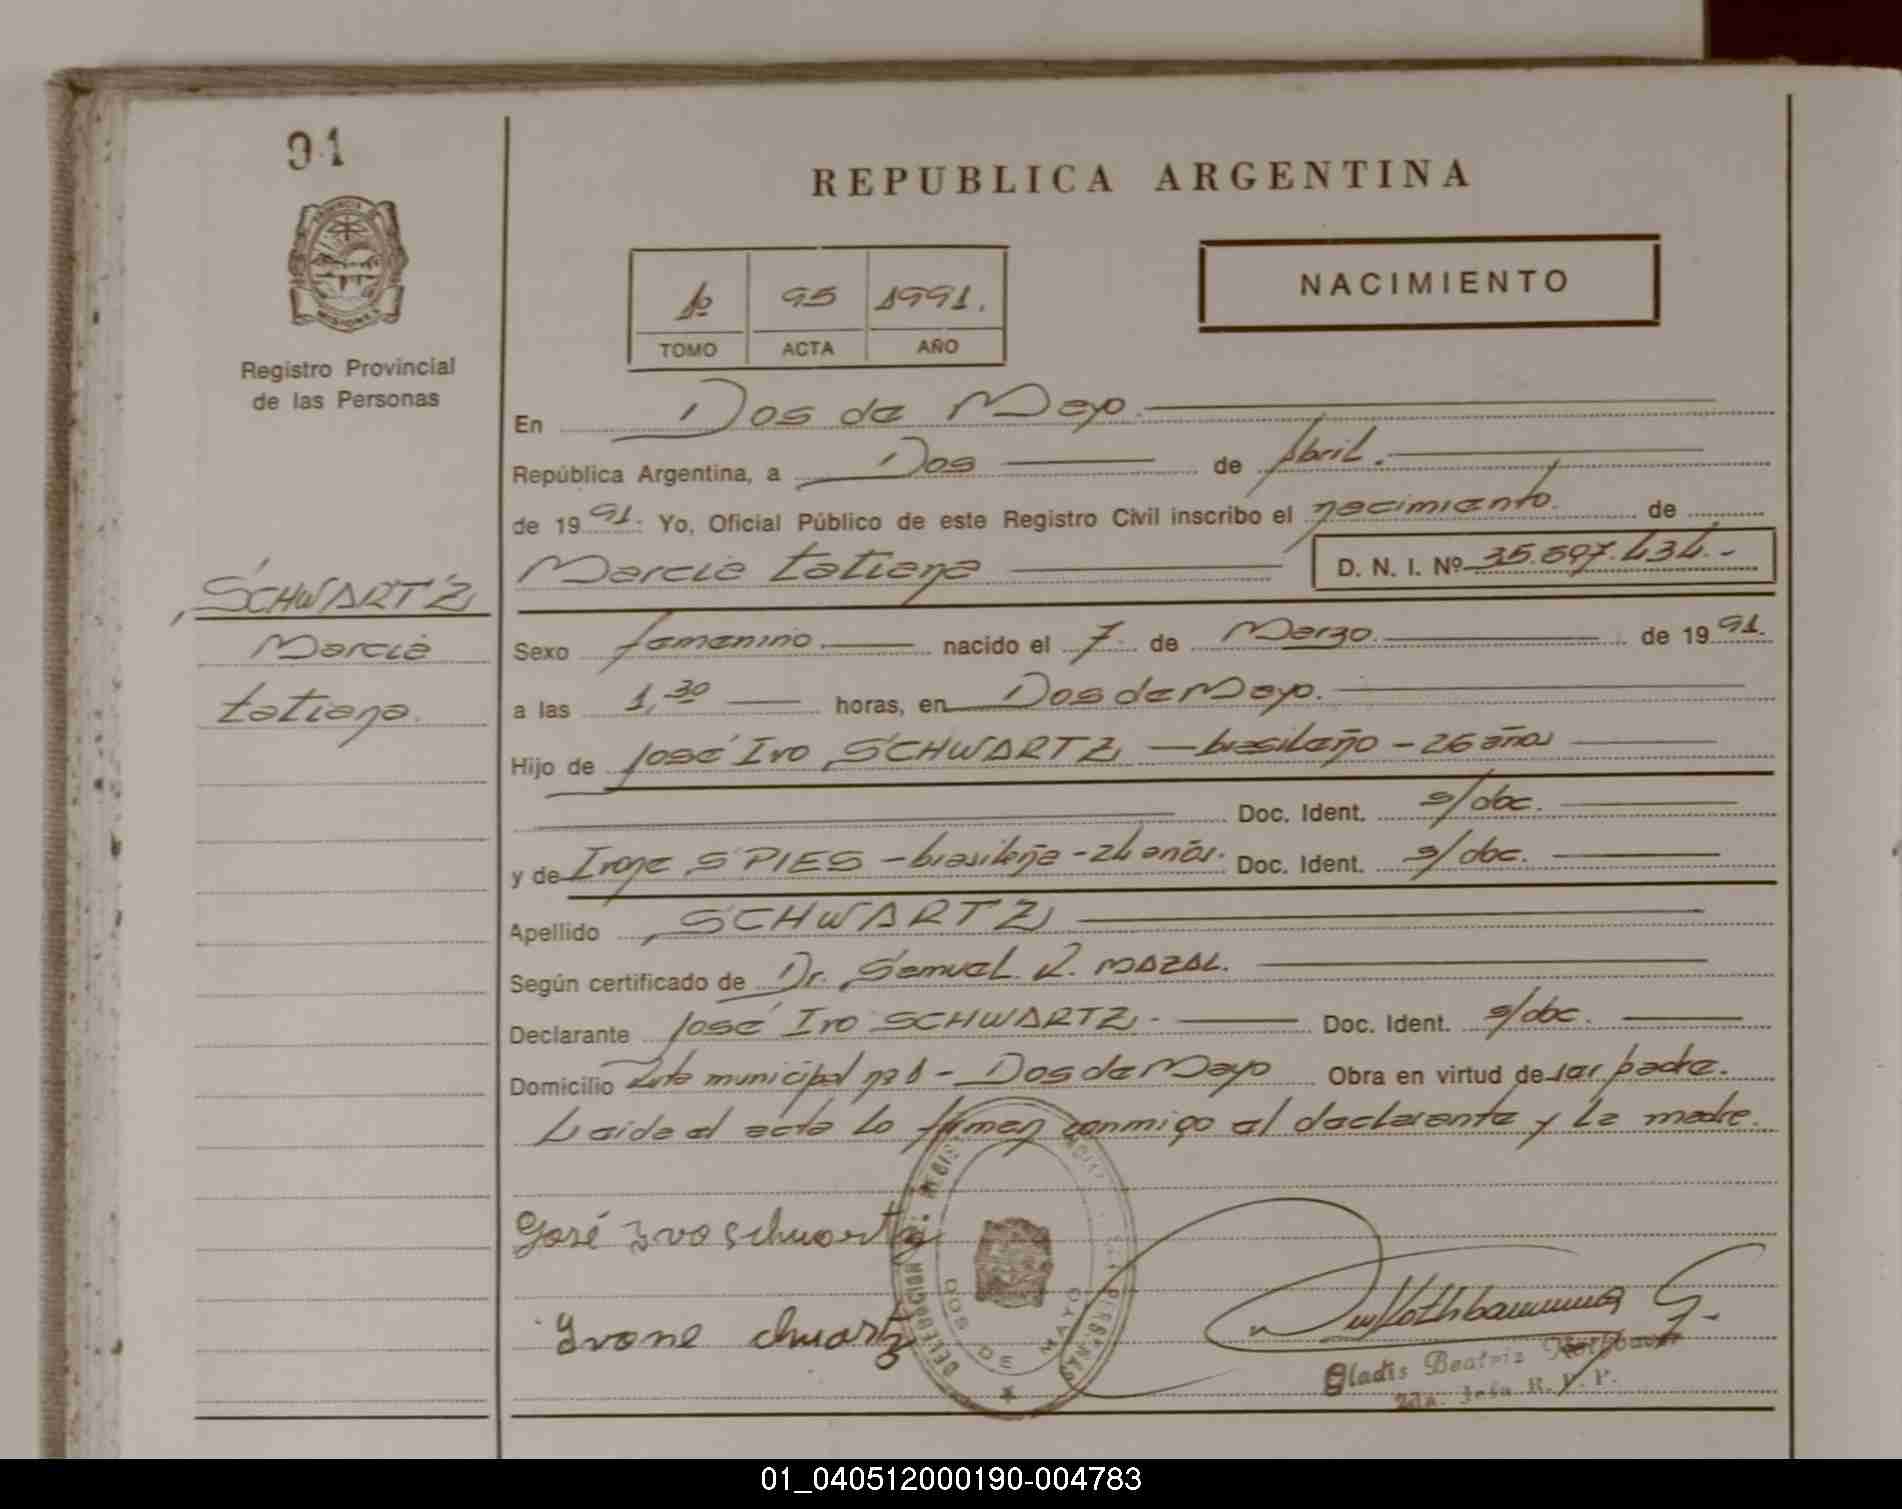 91
REPUBLICA ARGENTINA
PROVINCIA DE
MISIONES
Registro Provincial
de las Personas
1º 95 1991.
TOMO ACTA AÑO
NACIMIENTO
En Dos de Mayo.
República Argentina, a Dos de Abril.
de 1991. Yo, Oficial Público de este Registro Civil inscribo el nacimiento. de
Marcia Tatiana D. N. I. Nº 35.597.434.-
SCHWARTZ
Marcia
Tatiana.
Sexo femenino nacido el 7 de Marzo. de 1991.
a las 1,30 horas, en Dos de Mayo.
Hijo de José Ivo SCHWARTZ - brasileño - 26 años
Doc. Ident. s/doc.
y de Irone SPIES - brasileña - 24 años. Doc. Ident. s/doc.
Apellido SCHWARTZ
Según certificado de Dr. Samuel R. MAZAL.
Declarante José Ivo SCHWARTZ. - Doc. Ident. s/doc.
Domicilio Lote municipal nº 1 - Dos de Mayo Obra en virtud de ser padre.
Leida el acta lo firman conmigo el declarante y la madre.
José Ivo Schwartz.
Ivone chwartz
DELEGACION
DOS DE MAYO
Gladis Beatriz
2da. Jefa R. P. P.
01_040512000190-004783